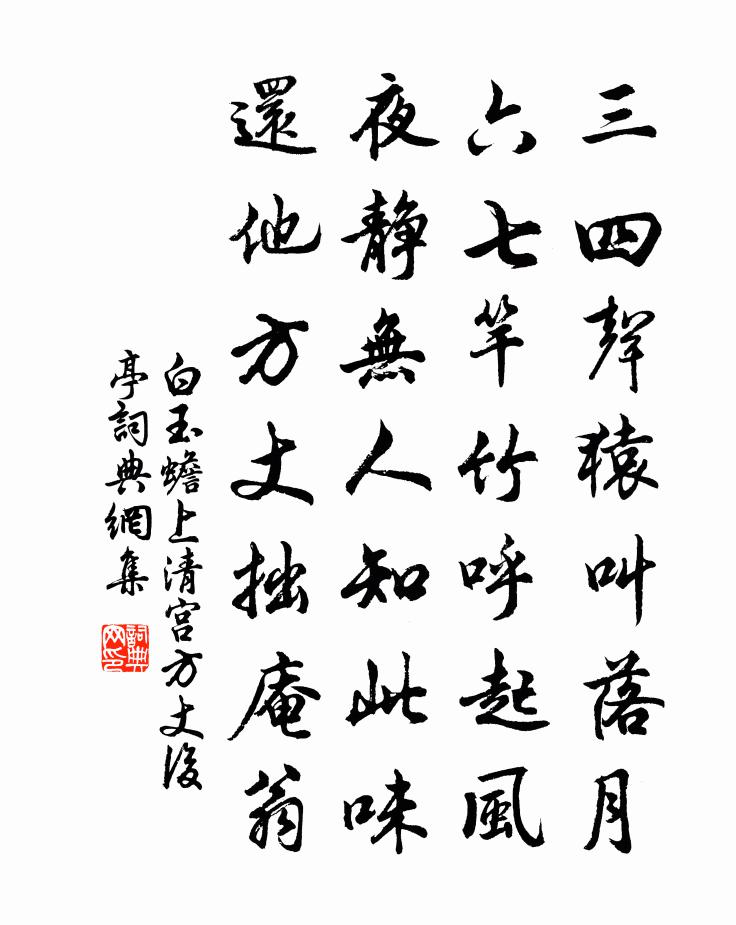 三四聲猿叫落月
六七竿竹呼起風
夜靜無人知此味
還他方丈拙庵翁
白玉蟾上清宮方丈後
亭詞典網集
詞典
网印